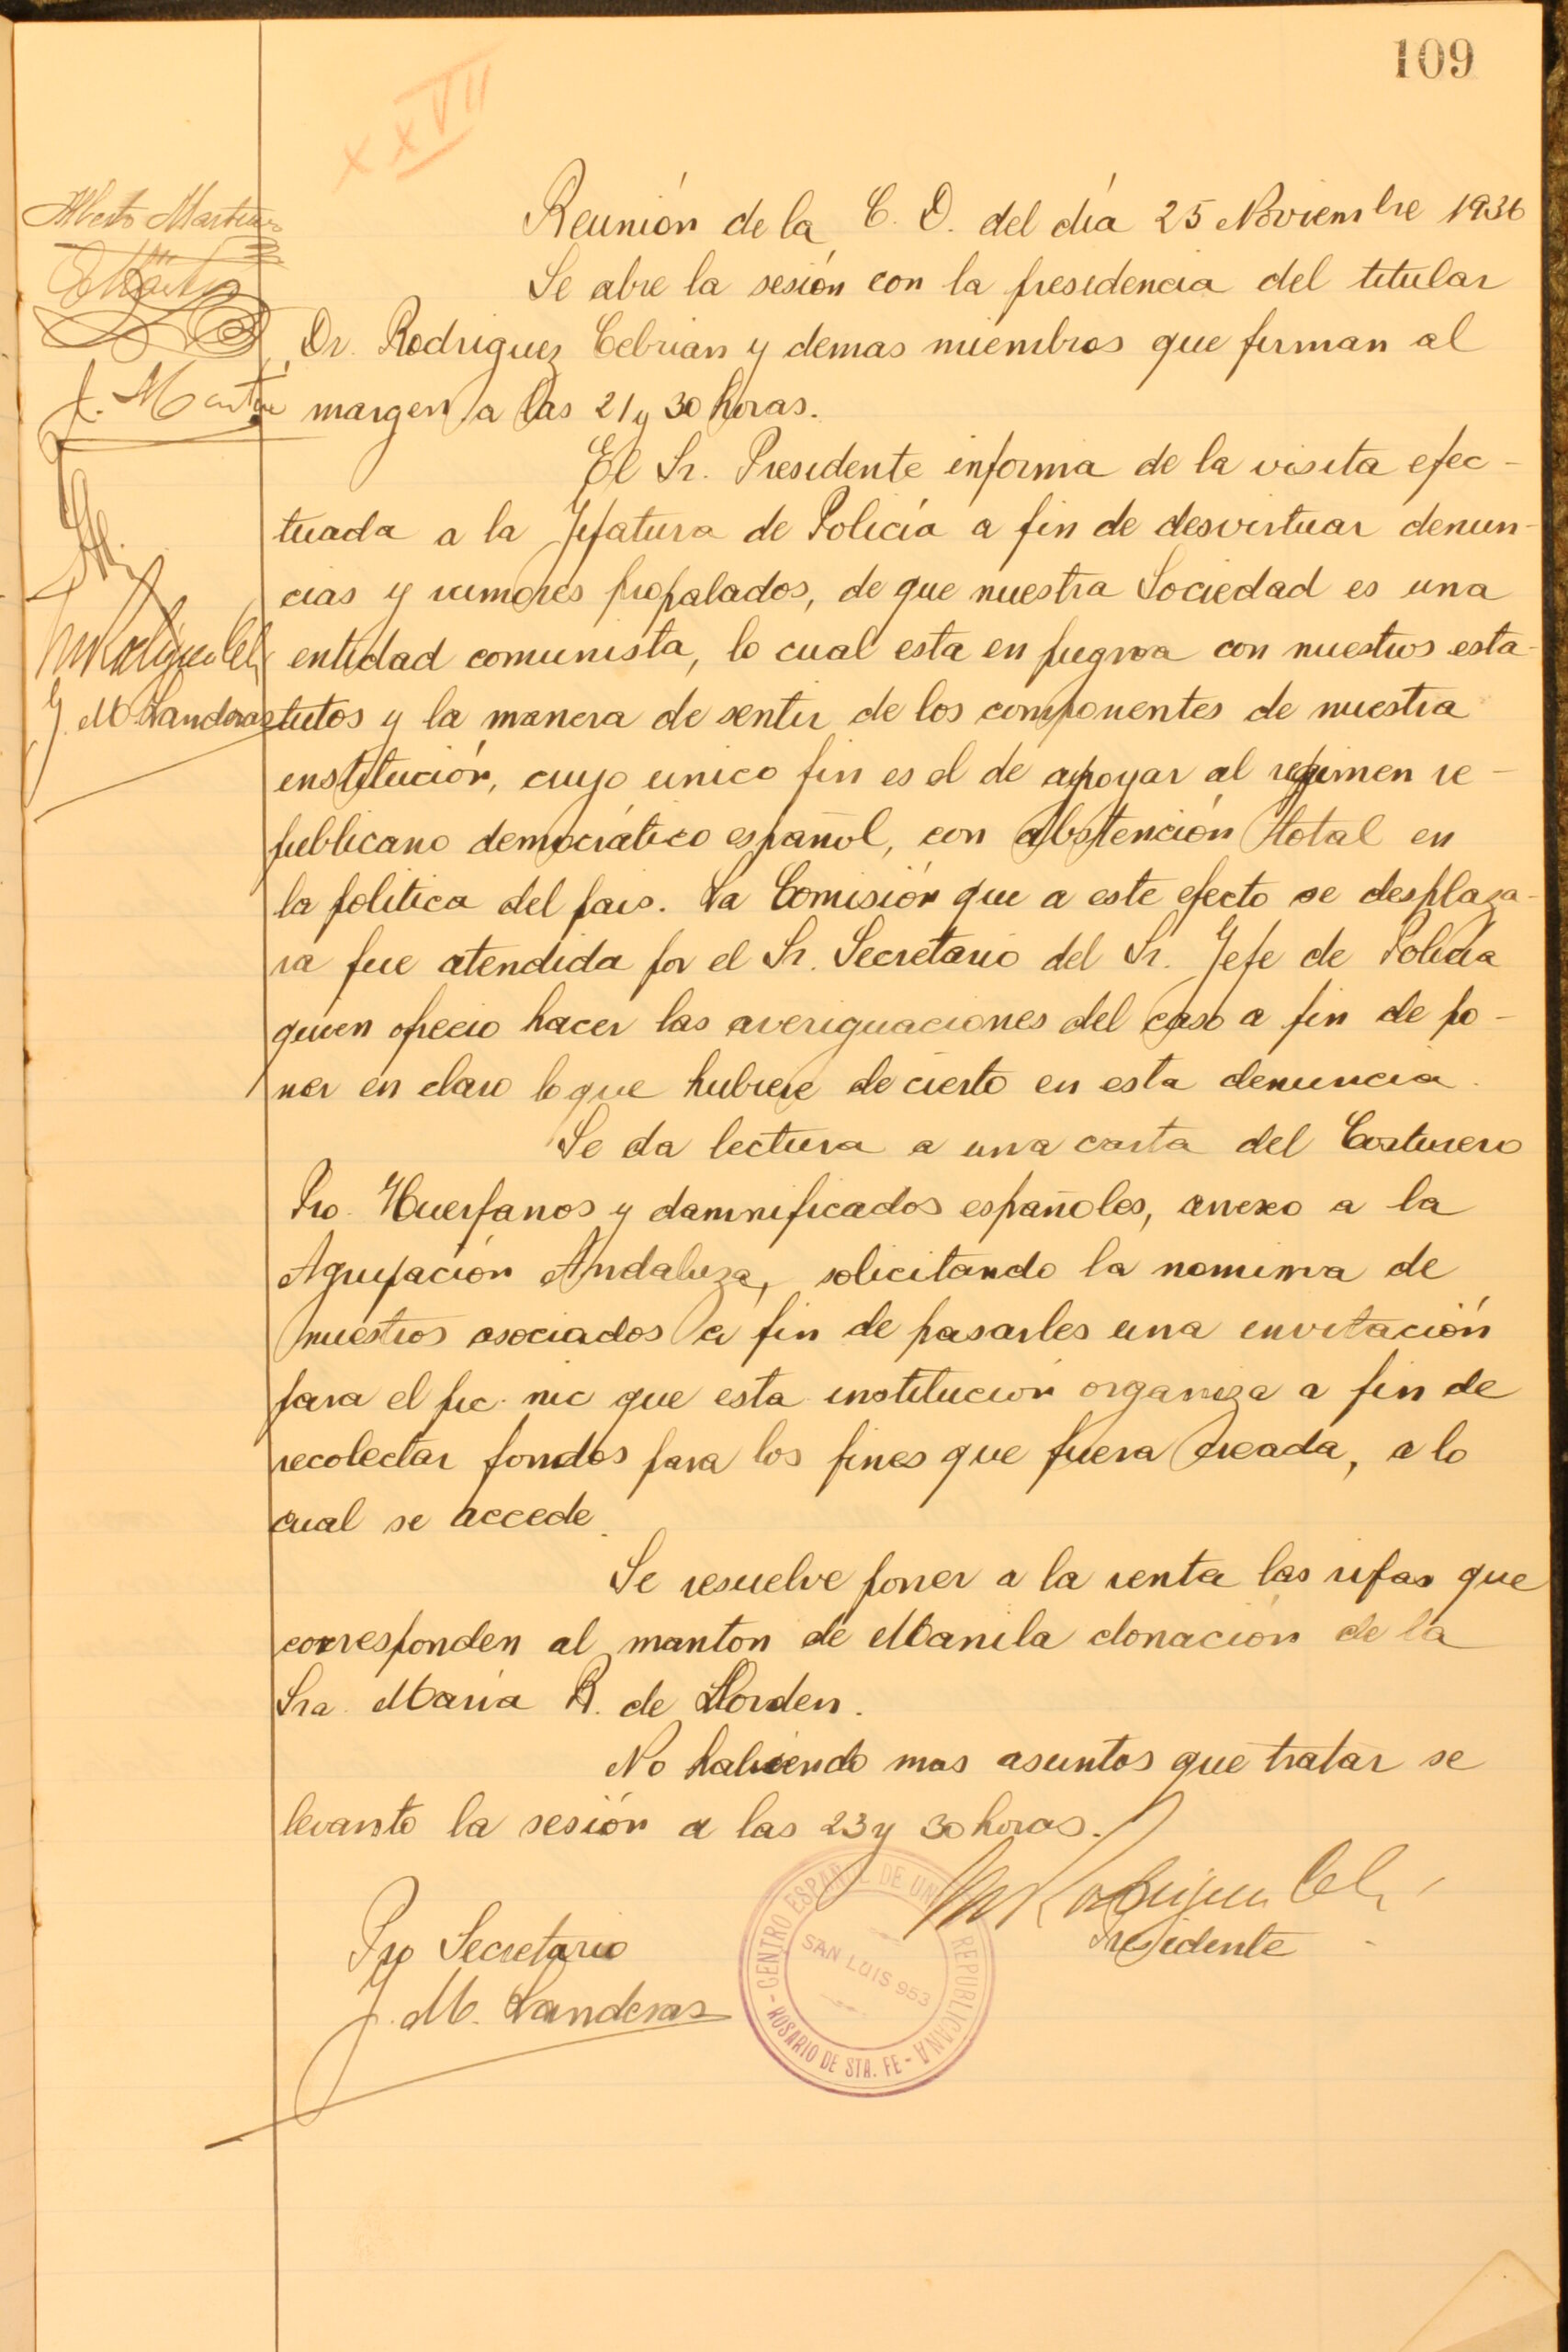 109
XXVII
Reunión de la C. D. del día 25 Noviembre 1936
Se abre la sesión con la presidencia del titular
Dr. Rodriguez Cebrian y demas miembros que firman al
margen a las 21 y 30 horas.
El Sr. Presidente informa de la visita efec-
tuada a la Jefatura de Policía a fin de desvirtuar denun-
cias y rumores propalados, de que nuestra Sociedad es una
entidad comunista, lo cual esta en pugna con nuestros esta-
tutos y la manera de sentir de los componentes de nuestra
institución, cuyo unico fin es el de apoyar al regimen re-
publicano democrático español, con abstención total en
la politica del pais. La Comisión que a este efecto se desplaza-
ra fue atendida por el Sr. Secretario del Sr. Jefe de Policia
quien ofrecio hacer las averiguaciones del caso a fin de po-
ner en claro lo que hubiere de cierto en esta denuncia.
Se da lectura a una carta del Costurero
Pro. Huerfanos y damnificados españoles, anexo a la
Agrupación Andaluza, solicitando la nomina de
nuestros asociados a fin de pasarles una invitación
para el pic-nic que esta institución organiza a fin de
recolectar fondos para los fines que fuera creada, a lo
cual se accede.
Se resuelve poner a la venta las rifas que
corresponden al manton de Manila donación de la
Sra. Maria R. de Llorden.
No habiendo mas asuntos que tratar se
levanto la sesión a las 23 y 30 horas.
Alberto Martinez
J. M. Landeras
Pro Secretario
J. M. Landeras
Presidente
CENTRO ESPAÑOL DE UN REPUBLICANA
SAN LUIS 953
- ROSARIO DE STA. FE -